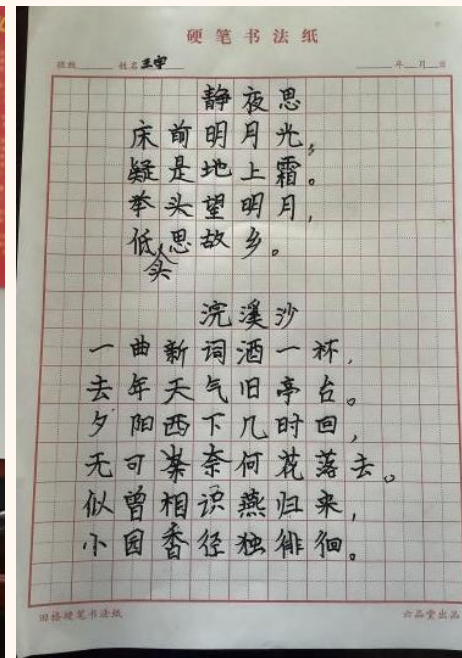 硬笔书法纸
班级 姓名 王宇 年 月 日
静夜思
床前明月光，
疑是地上霜。
举头望明月，
低头思故乡。
浣溪沙
一曲新词酒一杯，
去年天气旧亭台。
夕阳西下几时回，
无可奈何花落去。
似曾相识燕归来，
小园香径独徘徊。
田格硬笔书法纸 六品堂出品